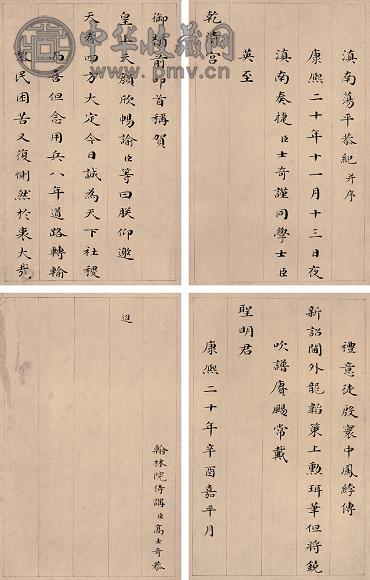 滇南蕩平恭紀并序
康熙二十年十一月十三日夜
滇南奏捷臣士奇謹同學士臣
英至
乾清宮
御前叩首稱賀
皇上天顏欣暢諭臣等曰朕仰邀
天眷四方大定今日誠為天下社稷
喜但念用兵八年道路轉輸
民困苦又復惻然於衷大哉
禮意徒殷寰中鳳綍傳
新詔閫外龍韜策上勳珥華但將鐃
吹譜賡颺常戴
聖明君
康熙二十年辛酉嘉平月
翰林院侍講臣高士奇恭
進
中华收藏网
www.pmv.cn